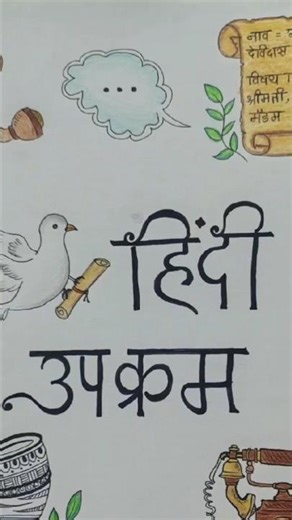 ...
नाव =
देविदास
विषय
श्रीमती,
मॅडम
हिंदी
उपक्रम